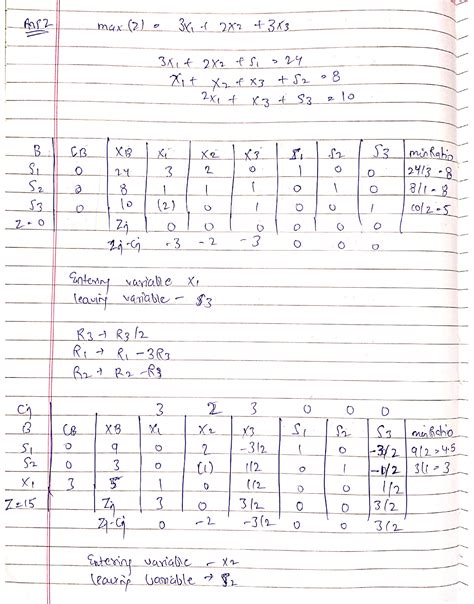 Ans2 max(z) = 3x1 + 2x2 + 3x3
3x1 + 2x2 + S1 = 24
x1 + x2 + x3 + S2 = 8
2x1 + x3 + S3 = 10
B CB XB X1 X2 X3 S1 S2 S3 minRatio
S1 0 24 3 2 0 1 0 0 24/3 = 8
S2 0 8 1 1 1 0 1 0 8/1 = 8
S3 0 10 (2) 0 1 0 0 1 10/2 = 5
Z=0 Zj 0 0 0 0 0 0
Zj-Cj -3 -2 -3 0 0 0
Entering variable X1
leaving variable - S3
R3 → R3/2
R1 → R1 - 3R3
R2 → R2 - R3
Cj 3 2 3 0 0 0
B CB XB X1 X2 X3 S1 S2 S3 minRatio
S1 0 9 0 2 -3/2 1 0 -3/2 9/2 = 4.5
S2 0 3 0 (1) 1/2 0 1 -1/2 3/1 = 3
X1 3 5 1 0 1/2 0 0 1/2
Z=15 Zj 3 0 3/2 0 0 3/2
Zj-Cj 0 -2 -3/2 0 0 3/2
Entering variable - X2
leaving variable → S2